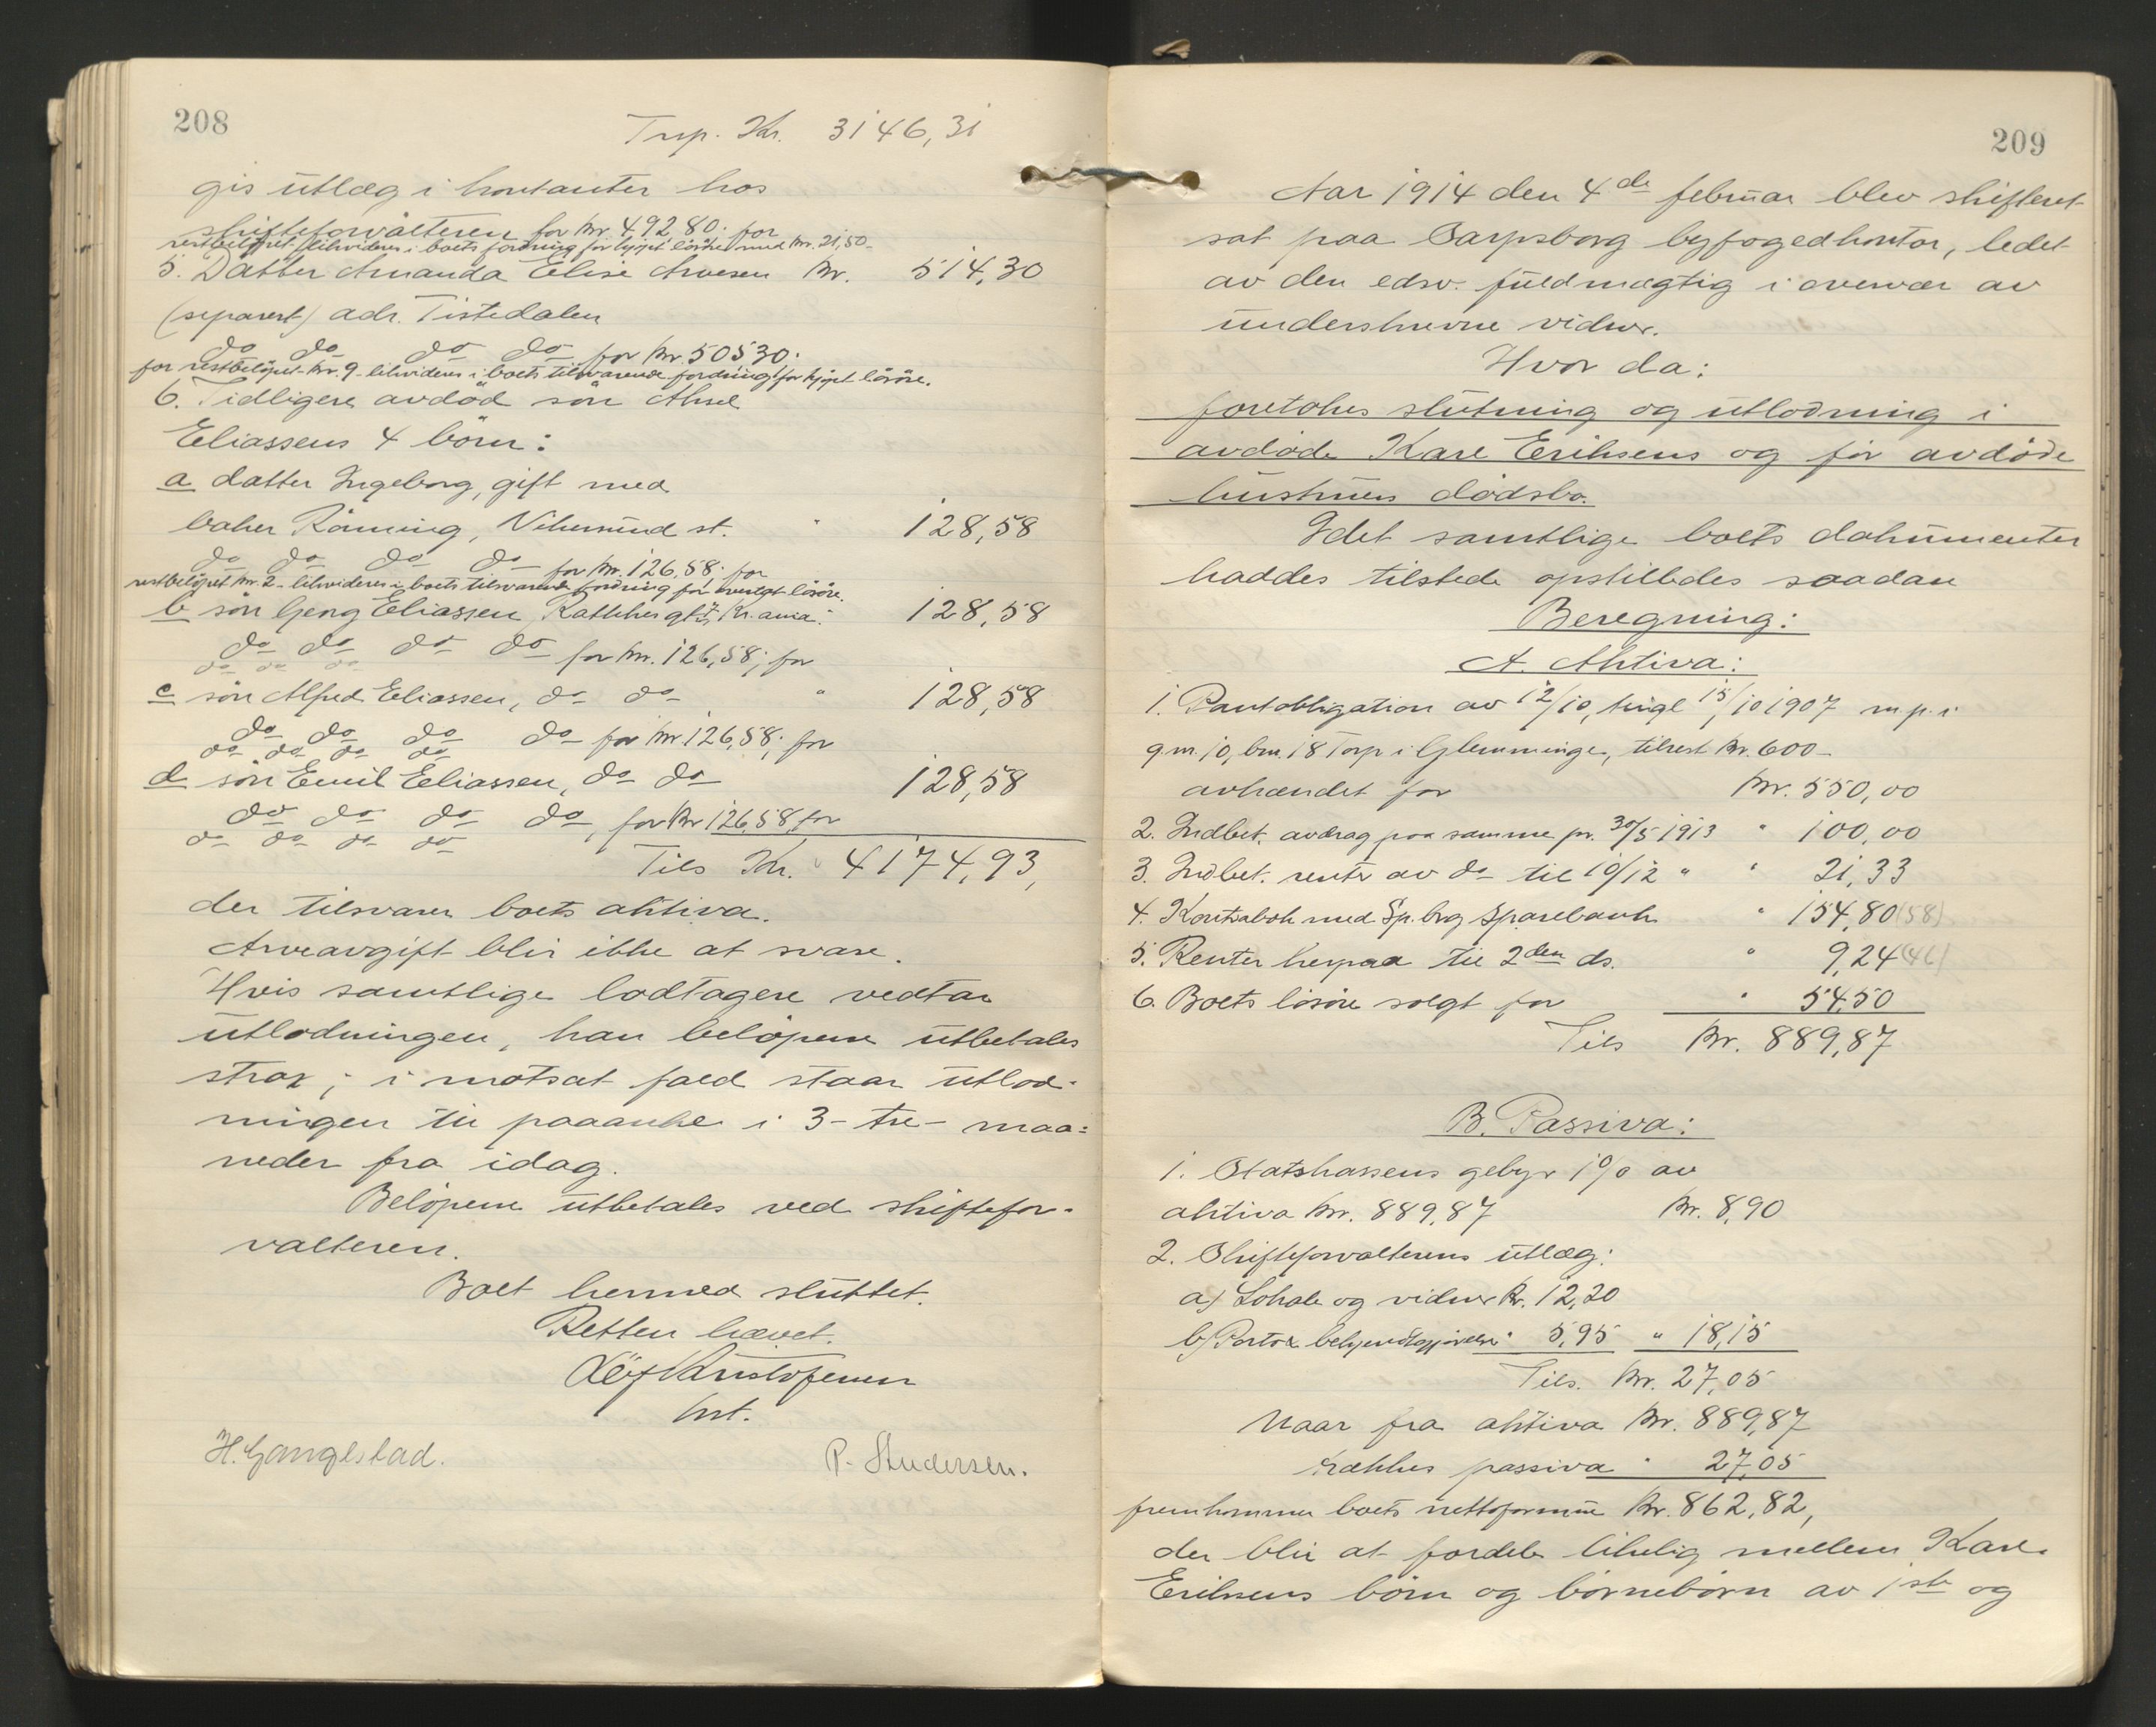 208
Trsp. Kr. 3146,31
gis utlæg i kontanter hos
skifteforvalteren for kr. 492,80. for
restbeløpet likvideres i boets fordring for kjøpt løsøre med kr. 21,50.
5. Datter Amanda Elise Arvesen kr. 514,30
(separert) adr. Tistedalen
do do do do for kr. 505,30.
for restbeløpet kr. 9 likvideres i boets tilsvarende fordring for kjøpt løsøre.
6. Tidligere avdød søn Aksel
Eliassens 4 børn:
a datter Ingeborg, gift med
baker Rønning, Vikersund st. " 128,58
do do do do for kr. 126,58. for
restbeløpet kr. 2 likvideres i boets tilsvarende fordring for løsøre.
b søn Georg Eliassen, Kr.ania. 128,58
do do do do for kr. 126,58; for
do do do
c søn Alfred Eliassen, do do " 128,58
do do do do for kr. 126,58; for
do do do do
d søn Emil Eliassen, do do 128,58
do do do do, for kr 126,58, for
do do do do
Tils Kr. 4174,93,
der tilsvarer boets aktiva.
Arveavgift blir ikke at svare.
Hvis samtlige lodtagere vedtar
utlodningen, kan beløpene utbetales
strax; i motsat fald staar utlod-
ningen til paaanke i 3 - tre - maa=
neder fra idag.
Beløpene utbetales ved skiftefor-
valteren.
Boet hermed sluttet.
Retten hævet.
Leif Kristofersen
kst.
H. Gangestad. P. Andersen.
209
Aar 1914 den 4de februar blev skifteret
sat paa Sarpsborg byfogedkontor, ledet
av den edsv. fuldmægtig i overvær av
underskrevne vidner.
Hvor da:
foretokes slutning og utlodning i
avdøde Karl Eriksens og før avdøde
hustrues dødsbo.
Idet samtlige boets dokumenter
haddes tilstede opstilledes saadan
Beregning:
A. Aktiva:
1. Pantobligation av 12/10, tingl 15/10 1907 m.p. i
g.nr. 10, br.nr. 18 Torp i Glemminge, tilrest kr. 600 -
avhændet for kr. 550,00
2. Indbet. avdrag paa samme pr. 30/5 1913 " 100,00
3. Indbet. renter av do til 10/12 " " 21,33
4. Kontrabok med Sp.brg Sparebank " 154,80 (58)
5. Renter herpaa til 2den ds. " 9,24 (46)
6. Boets løsøre solgt for " 54,50
Tils Kr. 889,87
B. Passiva:
1. Statskassens gebyr 1% av
aktiva kr. 889,87 kr. 8,90
2. Skifteforvalterens utlæg:
a) Lokale og vidner kr. 12,20
b) Porto & bekjendtgjørelse " 5,95 " 18,15
Tils. kr. 27,05
Naar fra aktiva kr. 889,87
trækkes passiva " 27,05
fremkommer boets nettoformue kr. 862,82,
der blir at fordele likelig mellem Karl
Eriksens børn og børnebørn av 1ste og